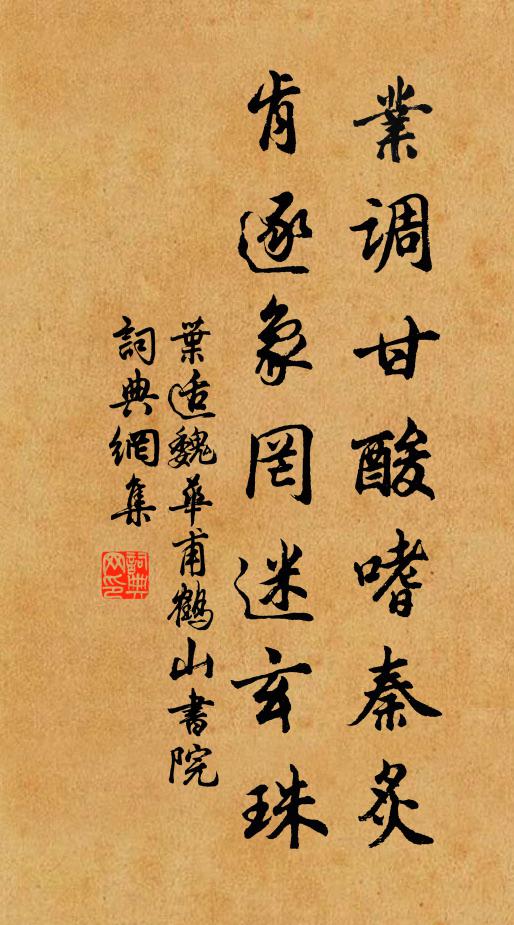 業調甘酸嗜秦炙
肯逐象罔迷玄珠
葉适魏華甫鶴山書院
詞典網集
詞典網印